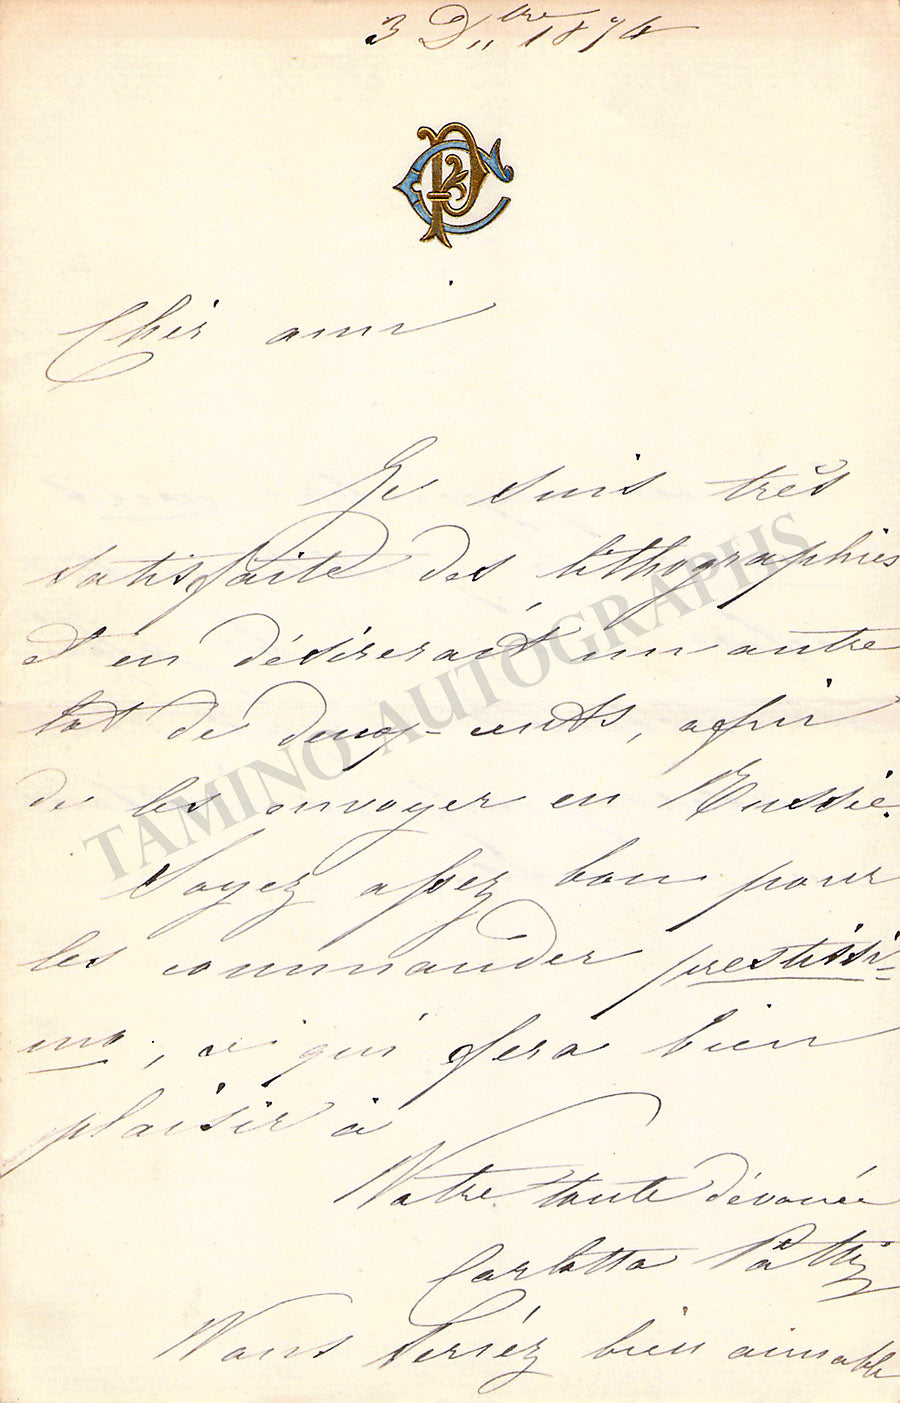 3 D,,bre 1874
CP
Cher ami
Je suis très
satisfaite des lithographies
et en désirerais un autre
lot de deux-cents, afin
de les envoyer en Russie.
Soyez assez bon pour
les commander prestissi-
mo, ce qui fera bien
plaisir à
Votre toute dévouée
Carlotta Patti
Vous seriéz bien aimable
TAMINO AUTOGRAPHS